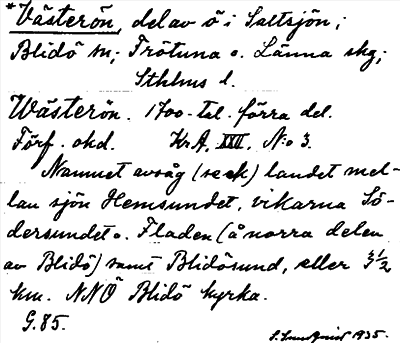 *Västerön, del av ö i Saltsjön;
Blidö sn; Frötuna o. Länna skg;
Sthlms l.
Wästerön. 1700-tal. förra del.
Förf. okd. Kr.A. XIII. N:o 3.
Namnet avsåg (seek) landet mel-
lan sjön Hemsundet, vikarna Sö-
dersundet o. Fladen (å norra delen
av Blidö) samt Blidösund, eller 3 1/2
km. NNÖ Blidö kyrka.
G.85.
1935.